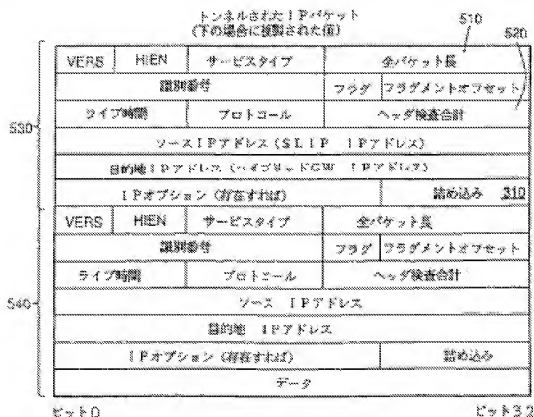 トンネルされたIPパケット
(下の場合に複製された値)
510
520
VERS HIEN サービスタイプ 全パケット長
識別番号 フラグ フラグメントオフセット
ライブ時間 プロトコール ヘッダ検査合計
530
ソースIPアドレス(SLIP IPアドレス)
目的地IPアドレス(ハイブリッドGW IPアドレス)
IPオプション(存在すれば) 詰め込み 310
VERS HIEN サービスタイプ 全パケット長
識別番号 フラグ フラグメントオフセット
ライブ時間 プロトコール ヘッダ検査合計
540
ソース IPアドレス
目的地 IPアドレス
IPオプション(存在すれば) 詰め込み
データ
ビット0 ビット32